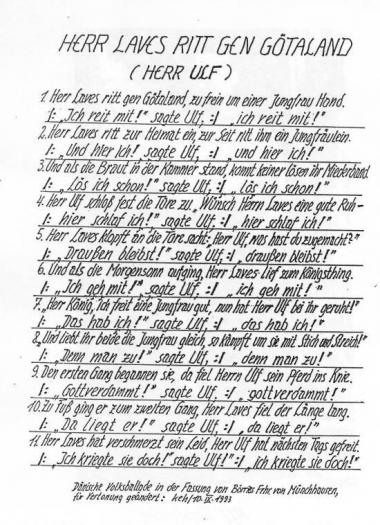 HERR LAVES RITT GEN GÖTALAND
(HERR ULF)
1. Herr Laves ritt gen Götaland, zu frein um einer Jungfrau Hand.
|: „Ich reit mit!“ sagte Ulf, :| „ich reit mit!“
2. Herr Laves ritt zur Heimat ein, zur Seit ritt ihm ein Jungfräulein.
|: „Und hier ich!“ sagte Ulf, :| „und hier ich!“
3. Und als die Braut in der Kammer stand, konnt keiner lösen ihr Miederband.
|: „Lös ich schon!“ sagte Ulf, :| „lös ich schon!“
4. Herr Ulf schloß fest die Türe zu, „Wünsch Herrn Laves eine gute Ruh –
|: hier schlaf ich!“ sagte Ulf, :| „hier schlaf ich!“
5. Herr Laves klopft an die Türe sacht: „Herr Ulf, was hast du zugemacht?“
|: „Draußen bleibst!“ sagte Ulf, :| „draußen bleibst!“
6. Und als die Morgensonn aufging, Herr Laves lief zum Königsthing.
|: „Ich geh mit!“ sagte Ulf, :| „ich geh mit!“
7. „Herr König, ich freit eine Jungfrau gut, nun hat Herr Ulf bei ihr geruht!“
|: „Das hab ich!“ sagte Ulf, :| „das hab ich!“
8. „Und liebt ihr beide die Jungfrau gleich, so kämpft um sie mit Stich und Streich!“
|: „Denn man zu!“ sagte Ulf, :| „denn man zu!“
9. Den ersten Gang begannen sie, da fiel Herrn Ulf sein Pferd ins Knie.
|: „Gottverdammt!“ sagte Ulf, :| „gottverdammt!“
10. Zu Fuß ging er zum zweiten Gang, Herr Laves fiel der Länge lang.
|: „Da liegt er!“ sagte Ulf, :| „da liegt er!“
11. Herr Laves hat verschmerzt sein Leid, Herr Ulf hat nächsten Tags gefreit.
|: „Ich kriegte sie doch!“ sagte Ulf! :| „ich kriegte sie doch!“
Dänische Volksballade in der Fassung von Börries Frhr. von Münchhausen,
für Vertonung geändert: keh/10.IX.1993